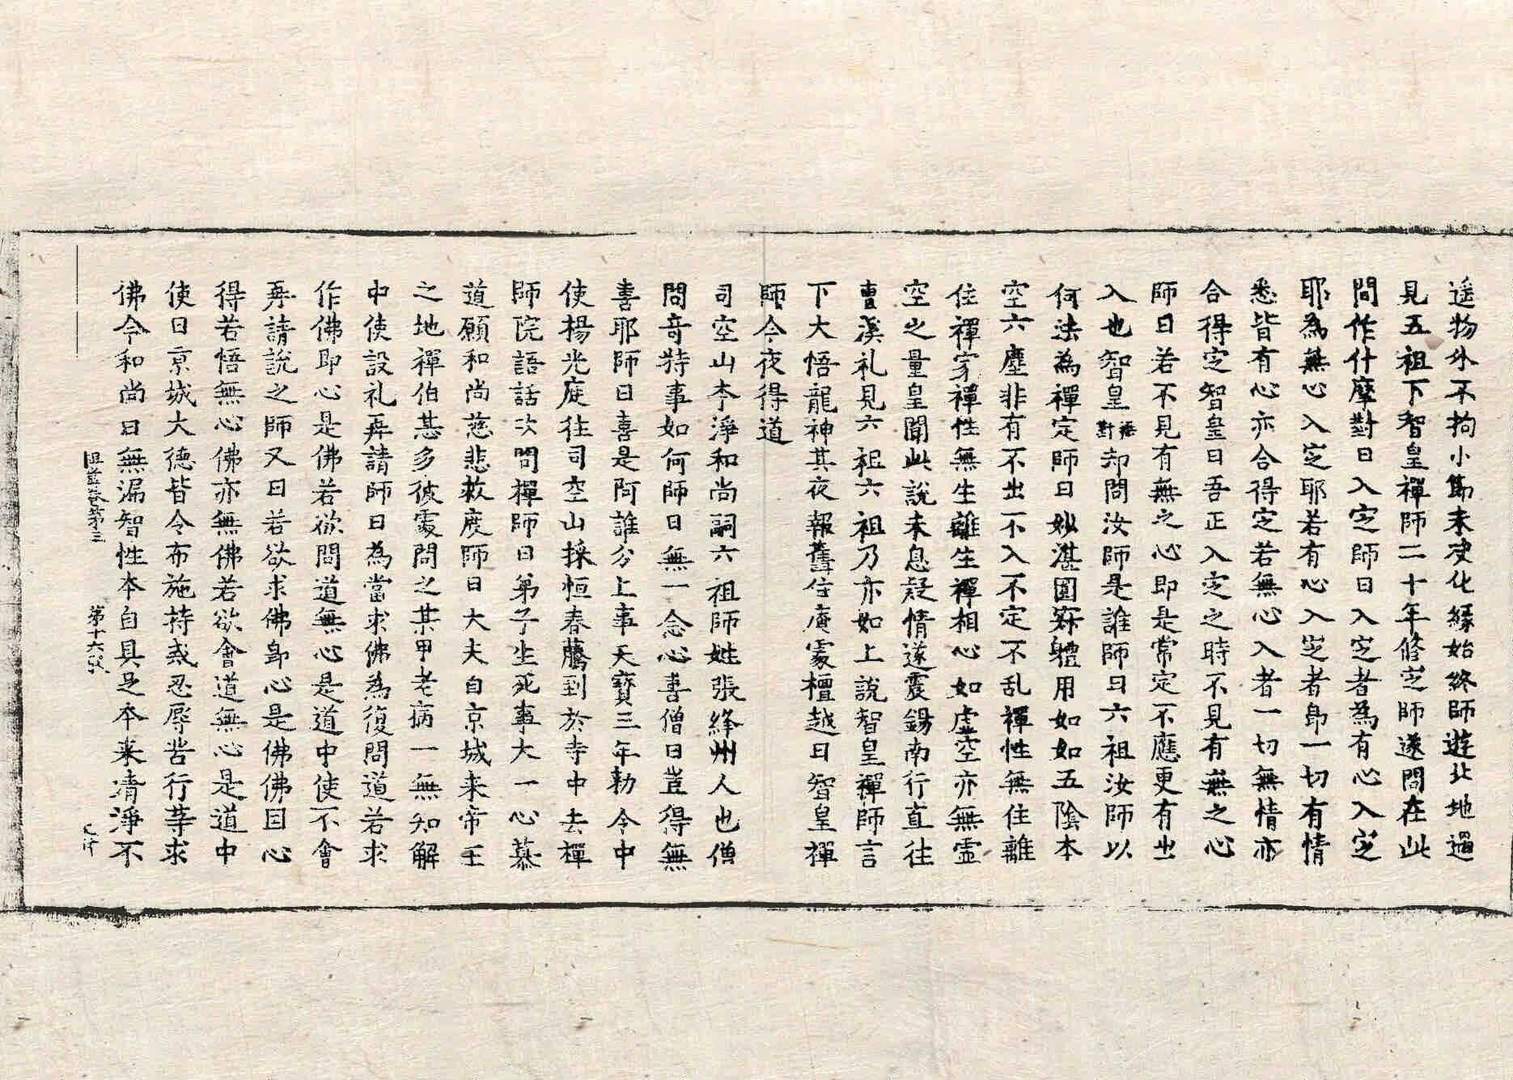 遥物外不拘小節未決化緣始終師遊北地遇
見五祖下智皇禪師二十年修定師遂問在此
間作什摩對曰入定師曰入定者為有心入定
耶為無心入定耶若有心入定者即一切有情
悉皆有心亦合得定若無心入者一切無情亦
合得定智皇曰吾正入定之時不見有無之心
師曰若不見有無之心即是常定不應更有出
入也智皇無對却問汝師是誰師曰六祖汝師以
何法為禪定師曰妙湛圓寂體用如如五陰本
空六塵非有不出不入不定不乱禪性無住離
住禪寂禪性無生離生禪相心如虛空亦無虛
空之量皇聞此說未息疑情遂震錫南行直往
曹溪礼見六祖六祖乃亦如上說智皇禪師言
下大悟龍神其夜報舊住庵處檀越曰智皇禪
師今夜得道
司空山本淨和尚嗣六祖師姓張絳州人也僧
問奇特事如何師曰無一念心喜僧曰豈得無
喜耶師曰喜是阿誰分上事天寶三年勅令中
使楊光庭往司空山採恒春藤到於寺中去禪
師院語話次問禪師曰弟子生死事大一心慕
道願和尚慈悲救度師曰大夫自京城来帝王
之地禪伯甚多彼處問之某甲老病一無知解
中使設礼再請師曰為當求佛為復問道若求
作佛即心是佛若欲問道無心是道中使不會
再請說之師又曰若欲求佛即心是佛佛因心
得若悟無心佛亦無佛若欲會道無心是道中
使曰京城大德皆令布施持戒忍辱苦行等求
佛今和尚曰無漏智性本自具足本来清淨不
祖堂卷第三　第十六張